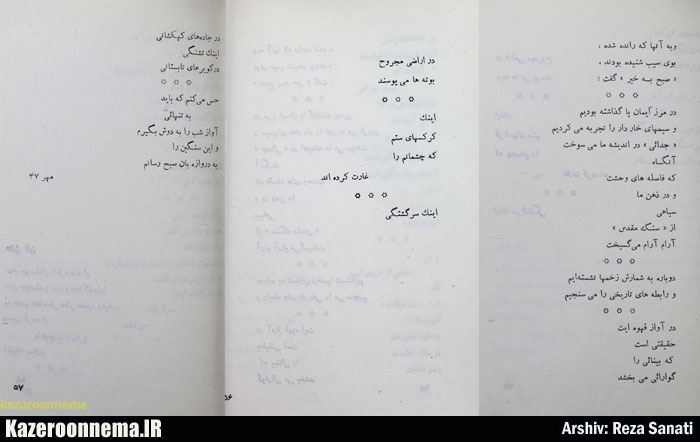 وبه آنها که رانده شده ،
بوی سیب شنیده بودند ،
« صبح بـه خیر » گفت :
در مرز آیمان پا گذاشته بودیم
و سیمهای خار دار را تجربه می کردیم
« جدائی » در اندیشه ما می سوخت
آنگاه
که فاصله های وحشت
و در ذهن ما
سیاهی
از « سنگ مقدس »
آرام آرام می‌گسیخت
دوباره به شمارش زخمها نشسته‌ایم
و رابطه های تاریخی را می سنجیم
در آواز قهوه ایت
حقیقتی است
که بینائی را
گوارائی می بخشد
در اراضی مجروح
بوته ها می پوسند
اینك
کرکسهای ستم
که چشمانم را
غارت کرده اند
اینك سرگشتگی
۵۶
در جاده‌های کهکشانی
اینك تشنگی
درکویرهای تابستانی
حس می‌کنم که باید
به تنهائی
آواز شب را به دوش بگیرم
و این سنگین را
به دروازه بان صبح رسانم
مهر ۴۷
۵۷
kazeroonnema
Kazeroonnema.IR
Arshiv: Reza Sanati